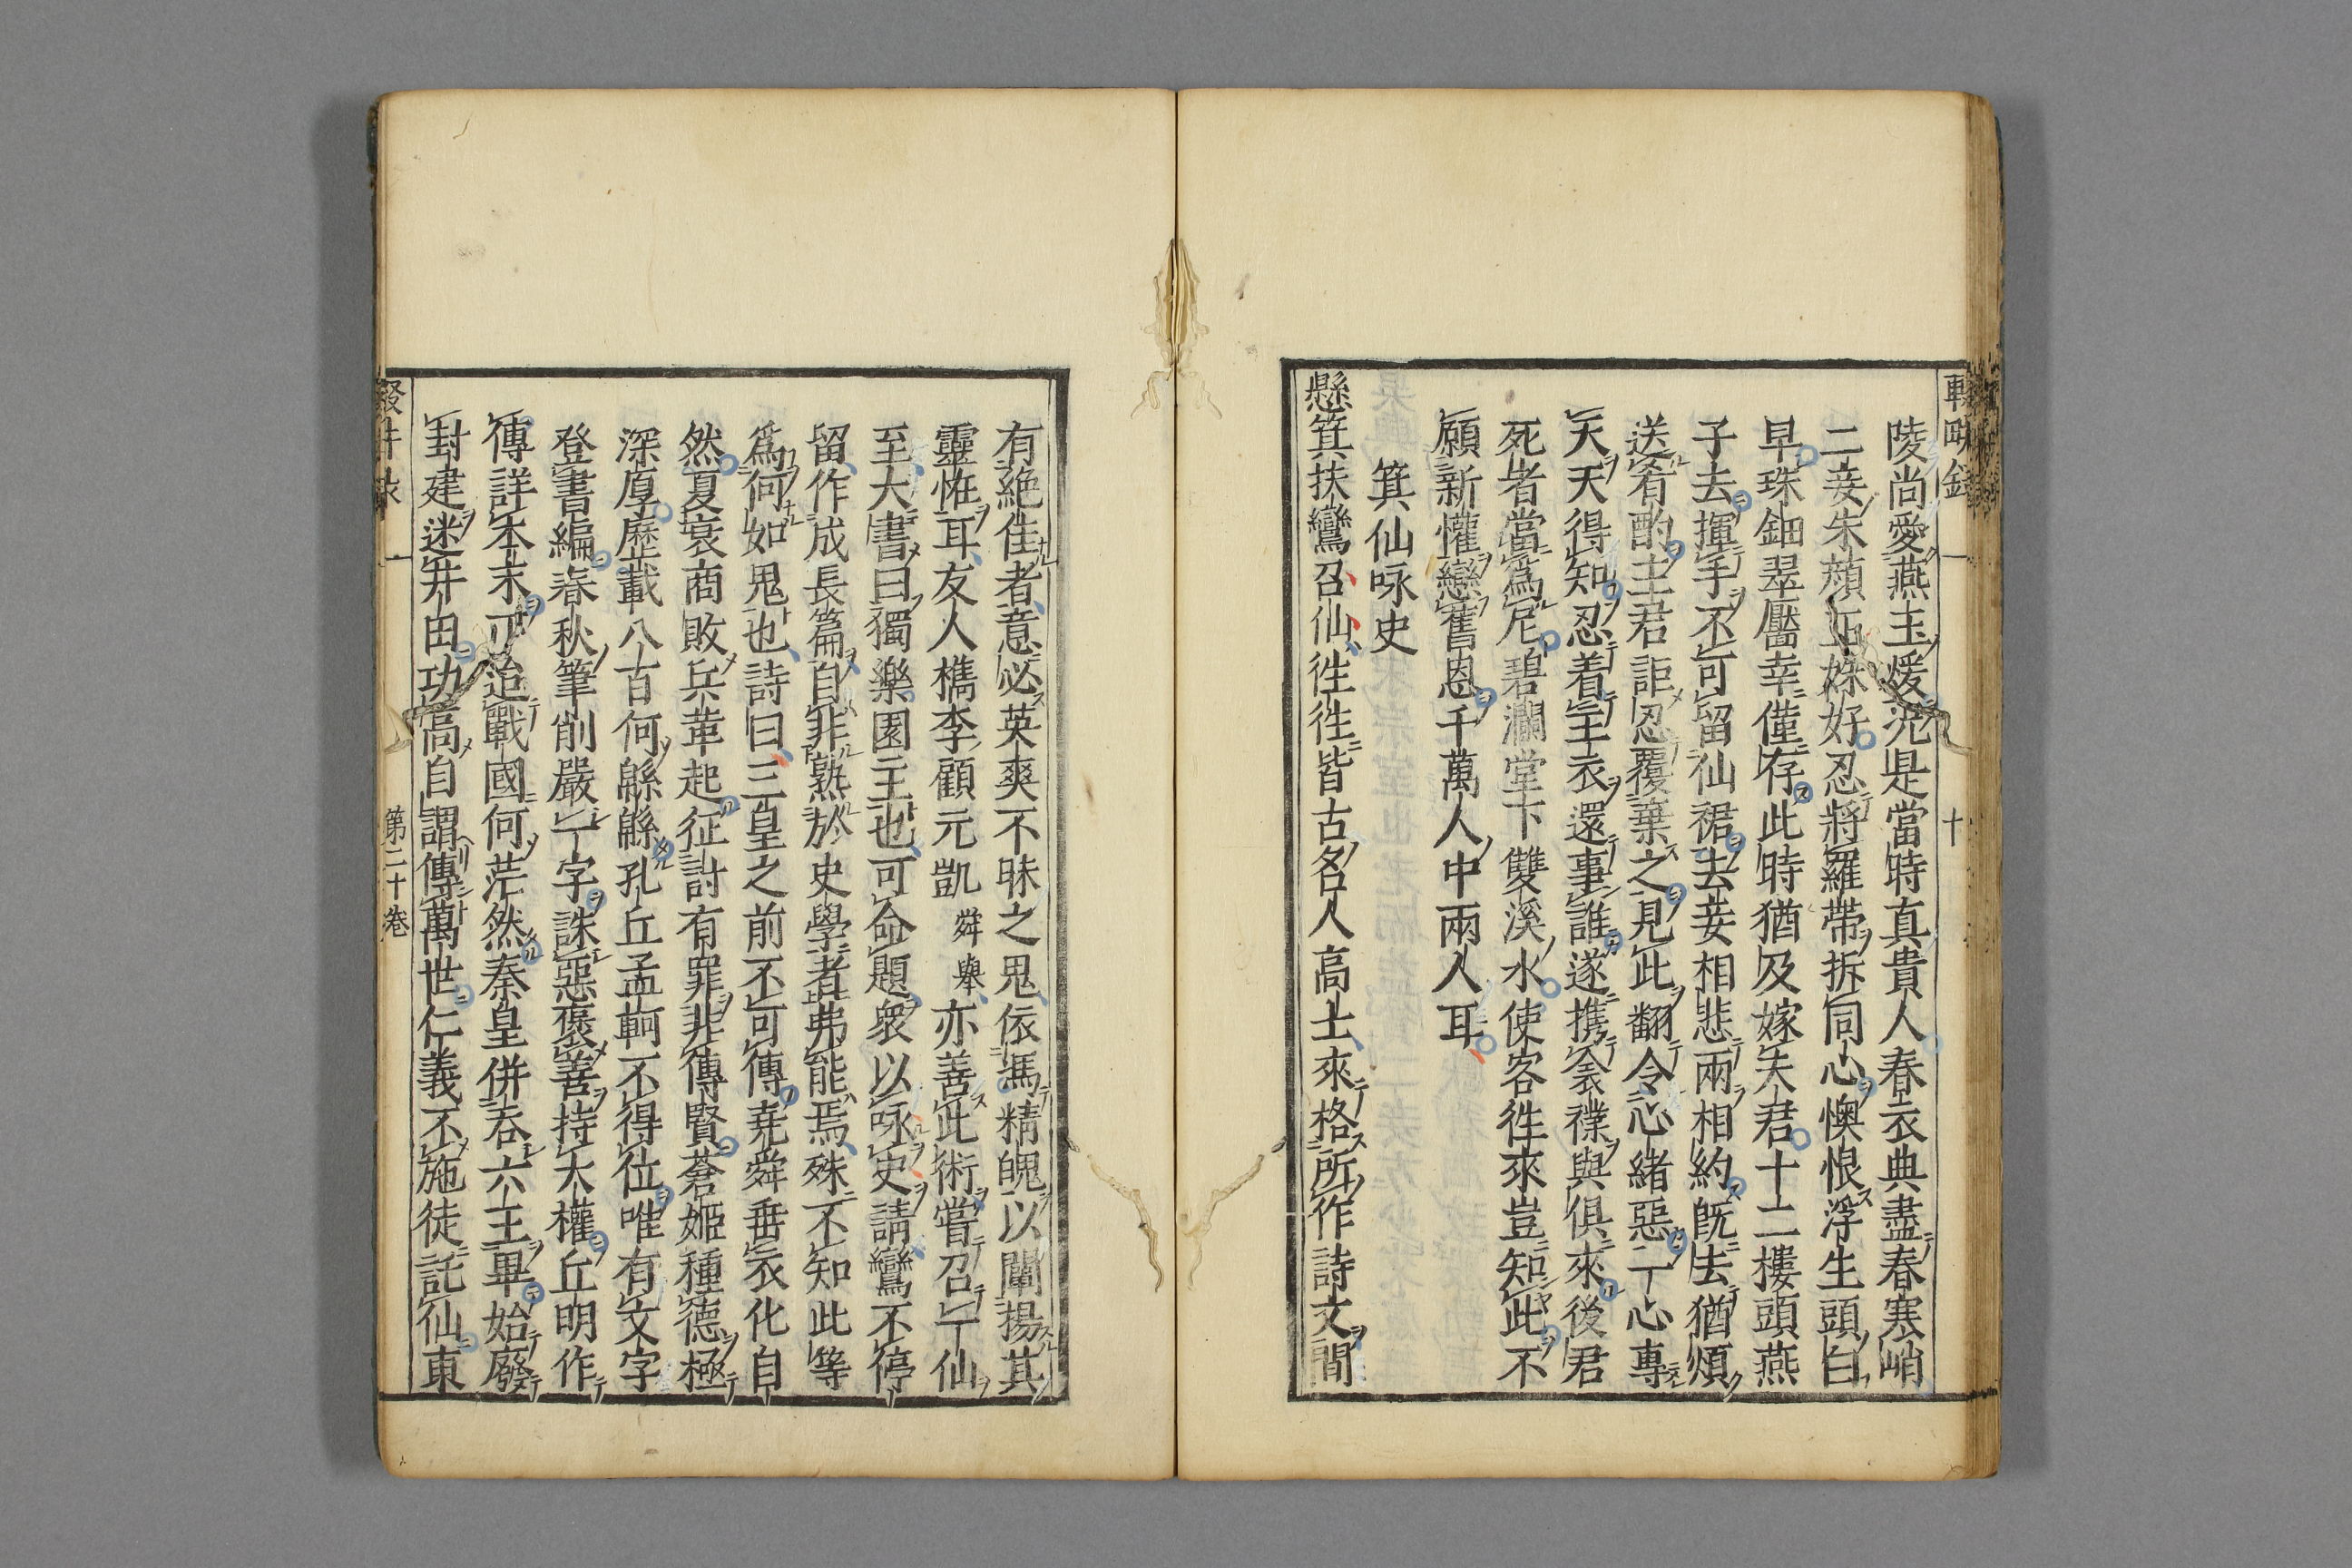 陵尚愛燕玉煖況是當時真貴人春衣典盡春寒峭
二妾朱顔正姝好忍將羅帶拆同心懊恨浮生頭白
早珠鈿翠靨幸僅存此時猶及嫁夫君十二樓頭燕
子去揮手不可留仙裾去妾相悲兩相約既去猶煩
送肴酌主君詎忍覆棄之見此翻令心緒惡一心專
天天得知忍着主衣還事誰遂携衾襆與俱來後君
死者當爲尼碧瀾堂下雙溪水使客徃來豈知此不
願新懽戀舊恩千萬人中兩人耳
箕仙咏史
懸箕扶鸞召仙徃徃皆古名人高士來格所作詩文間
有絶佳者意必英爽不昧之鬼依馮精魄以闡揚其
靈恠耳友人檇李顧元凱舜舉亦善此術嘗召一仙
至大書曰獨樂園主也可命題衆以咏史請鸞不停
留作成長篇自非熟於史學者弗能焉殊不知此等
爲何如鬼也詩曰三皇之前不可傳堯舜垂衣化自
然夏衰商敗兵革起征討有罪非傳賢蒼姬種德極
深厚歷載八百何緜緜孔丘孟軻不得位唯有文字
登書編春秋筆削嚴一字誅惡褒善持大權丘明作
傳詳本末迨戰國何茫然秦皇併呑六王畢始廢
封建迷井田功高自謂傳萬世仁義不施徒託仙東
第二十巻